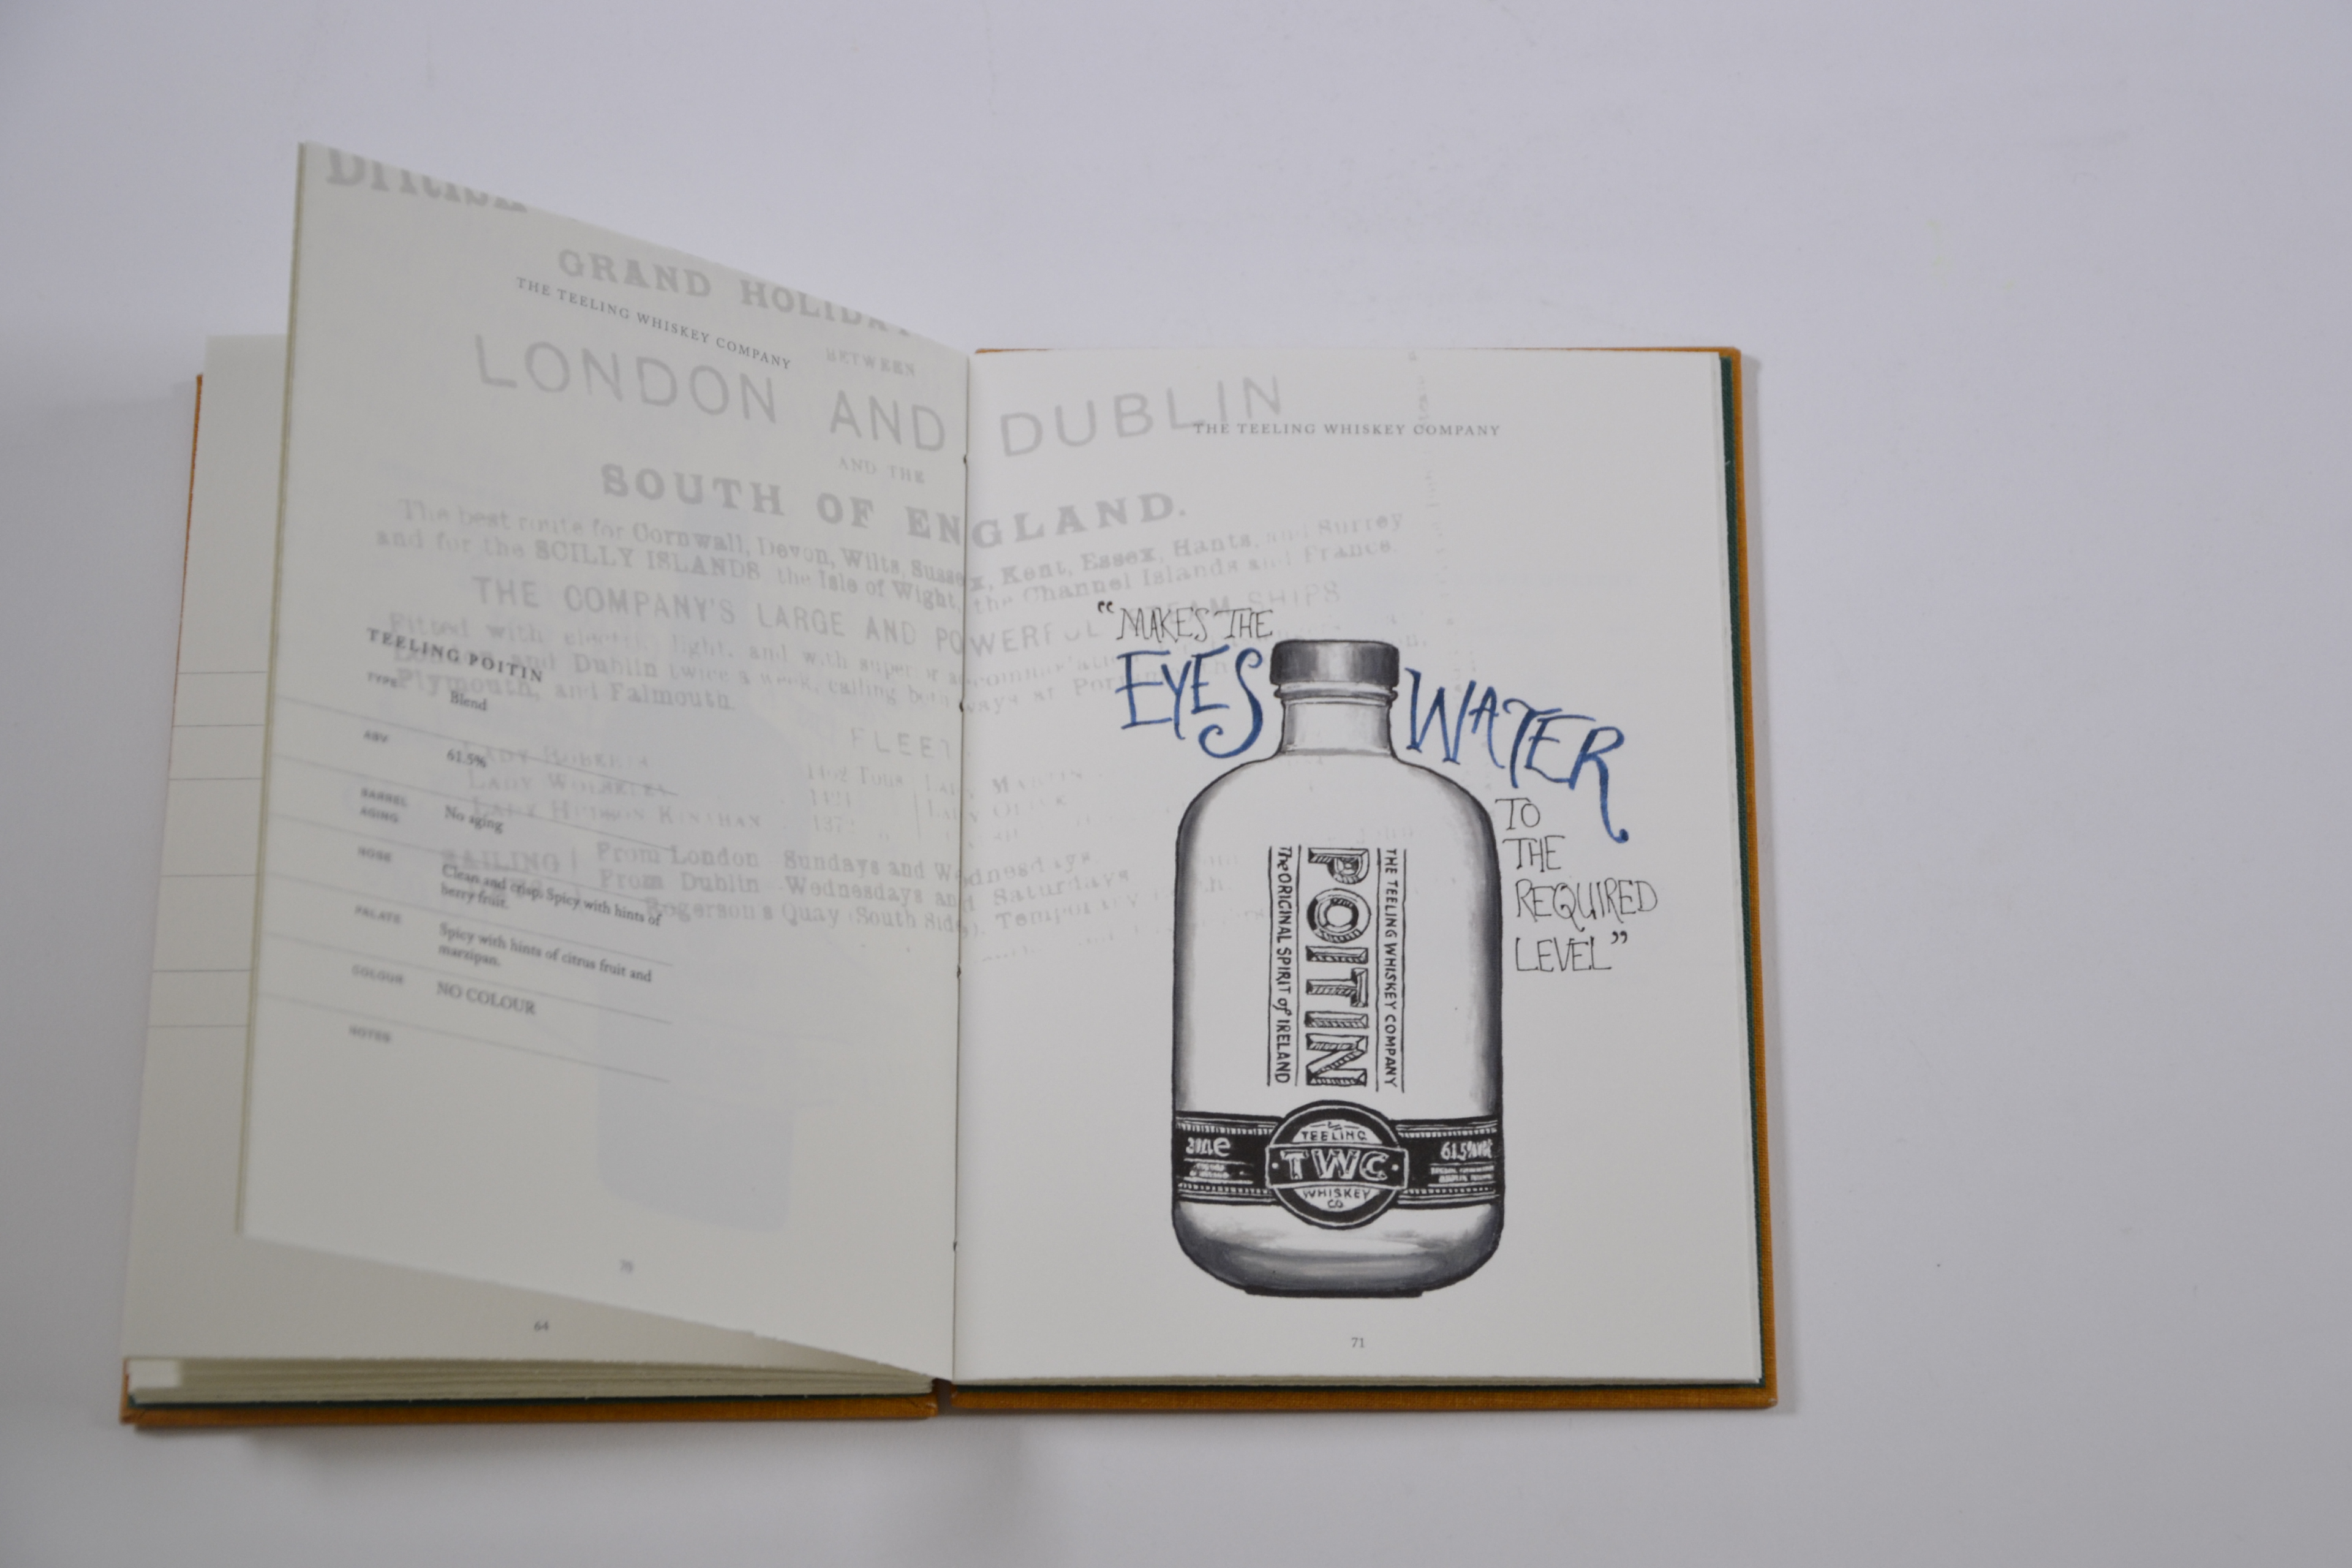 GRAND HOLIDAY
THE TEELING WHISKEY COMPANY
BETWEEN
LONDON AND DUBLIN
AND THE
SOUTH OF ENGLAND.
The best route for Cornwall, Devon, Wilts, Sussex, Kent, Essex, Hants, and Surrey
and for the SCILLY ISLANDS the Isle of Wight, the Channel Islands and France
THE COMPANY'S LARGE AND POWERFUL STEAM SHIPS
Fitted with electric light, and with superior accommodation
London and Dublin twice a week, calling both ways at
Plymouth, and Falmouth.
FLEET
LADY ROBERTS
LADY WOLSELEY
LADY HUDSON KINAHAN
Tons
LADY MARTIN
SAILING
From London Sundays and Wednesdays.
From Dublin Wednesdays and Saturdays
Rogerson's Quay (South Side).
TEELING POITIN
TYPE
Blend
ABV
61.5%
BARREL
AGING
No aging
NOSE
Clean and crisp. Spicy with hints of
berry fruit.
PALATE
Spicy with hints of citrus fruit and
marzipan.
COLOUR
NO COLOUR
NOTES
70
64
THE TEELING WHISKEY COMPANY
“MAKES THE
EYES WATER
TO
THE
REQUIRED
LEVEL”
THE TEELING WHISKEY COMPANY
POITIN
The ORIGINAL SPIRIT of IRELAND
TEELING
TWC
WHISKEY
CO
61.5%
71